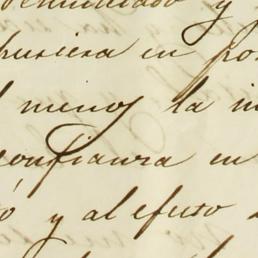 y
pusiera en po
l menos la in
confianza en
ó y al efecto